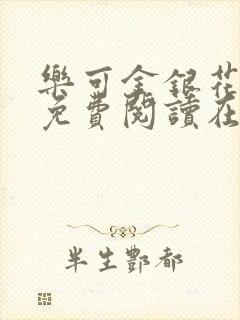 樂可金銀花
免費閱讀在
半生酆都